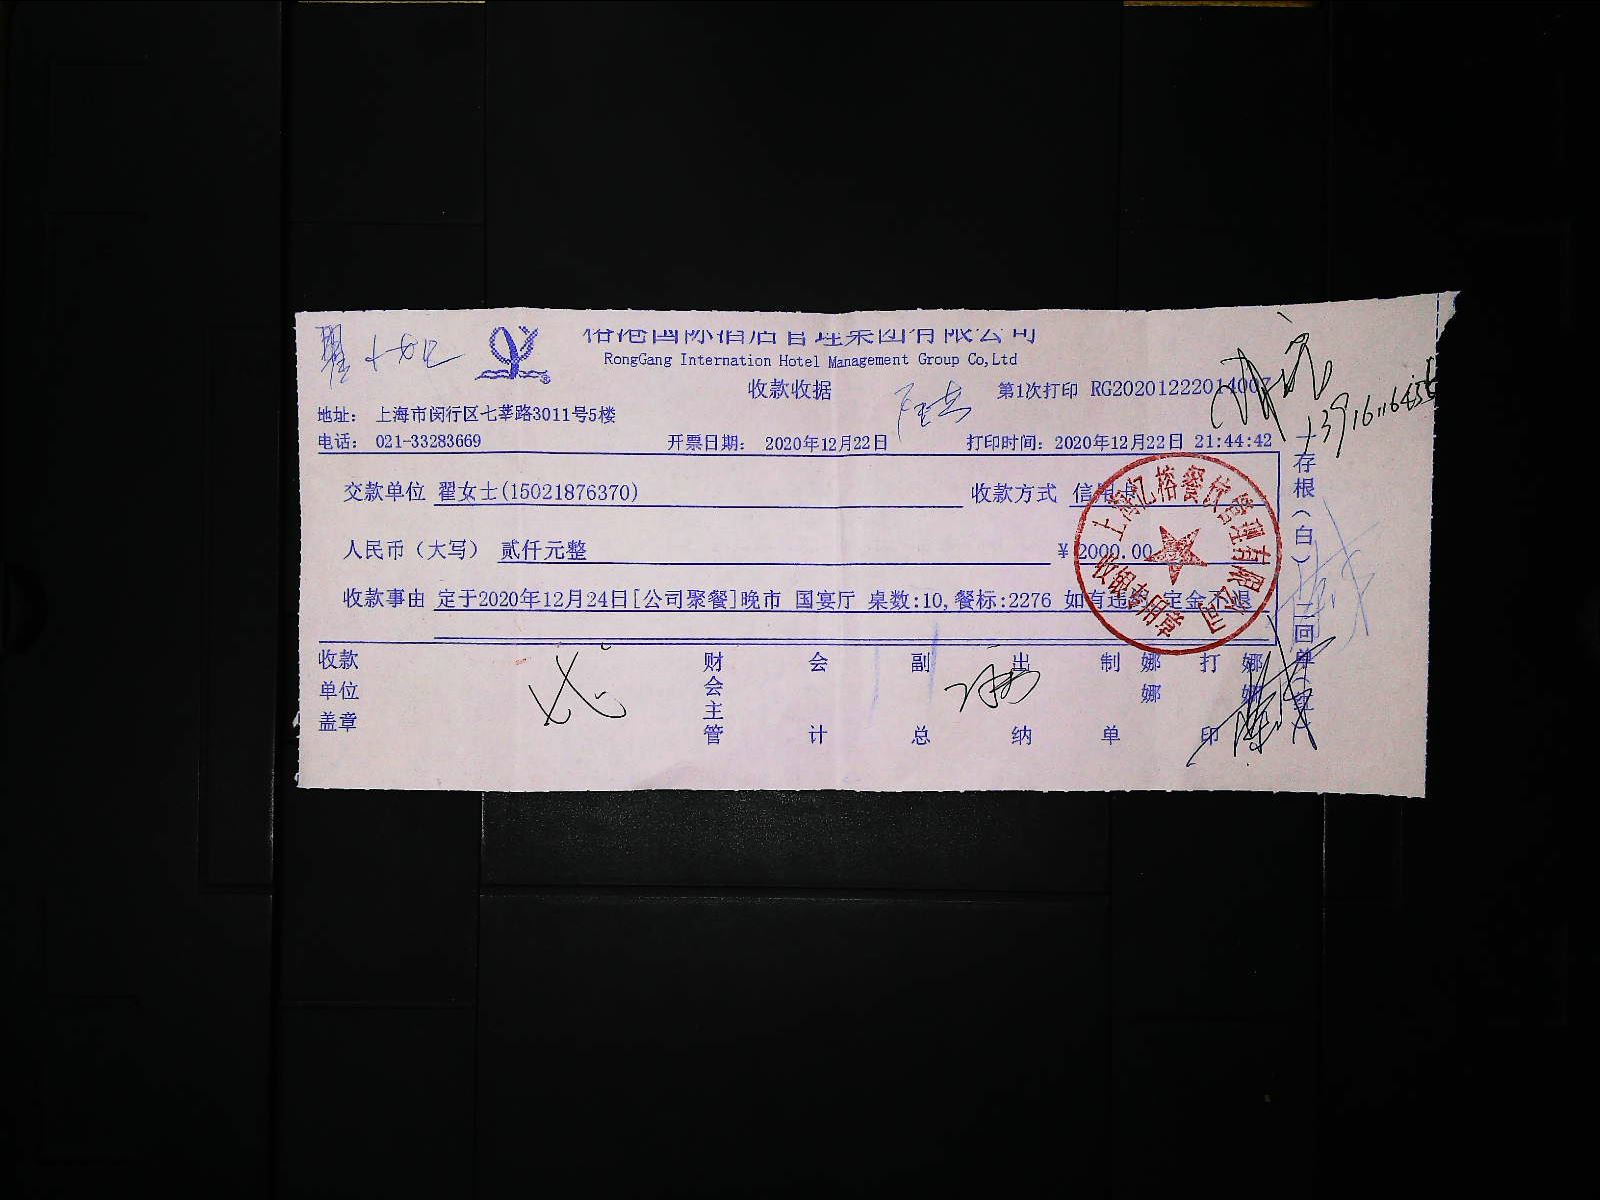 榕港国际酒店管理集团有限公司
RongGang Internation Hotel Management Group Co,Ltd
收款收据
第1次打印 RG20201222014007
地址： 上海市闵行区七莘路3011号5楼
电话： 021-33283669
开票日期： 2020年12月22日
打印时间：2020年12月22日 21:44:42
交款单位 翟女士(15021876370)
收款方式 信用卡
人民币（大写） 贰仟元整
￥2000.00
收款事由 定于2020年12月24日[公司聚餐]晚市 国宴厅 桌数:10,餐标:2276 如有违约 定金不退
收款单位盖章
财会主管
会计
副总
出纳
制单
娜娜
打印
娜娜
一存根（白）二回单（红）
上海亿榕餐饮管理有限公司
收银专用章